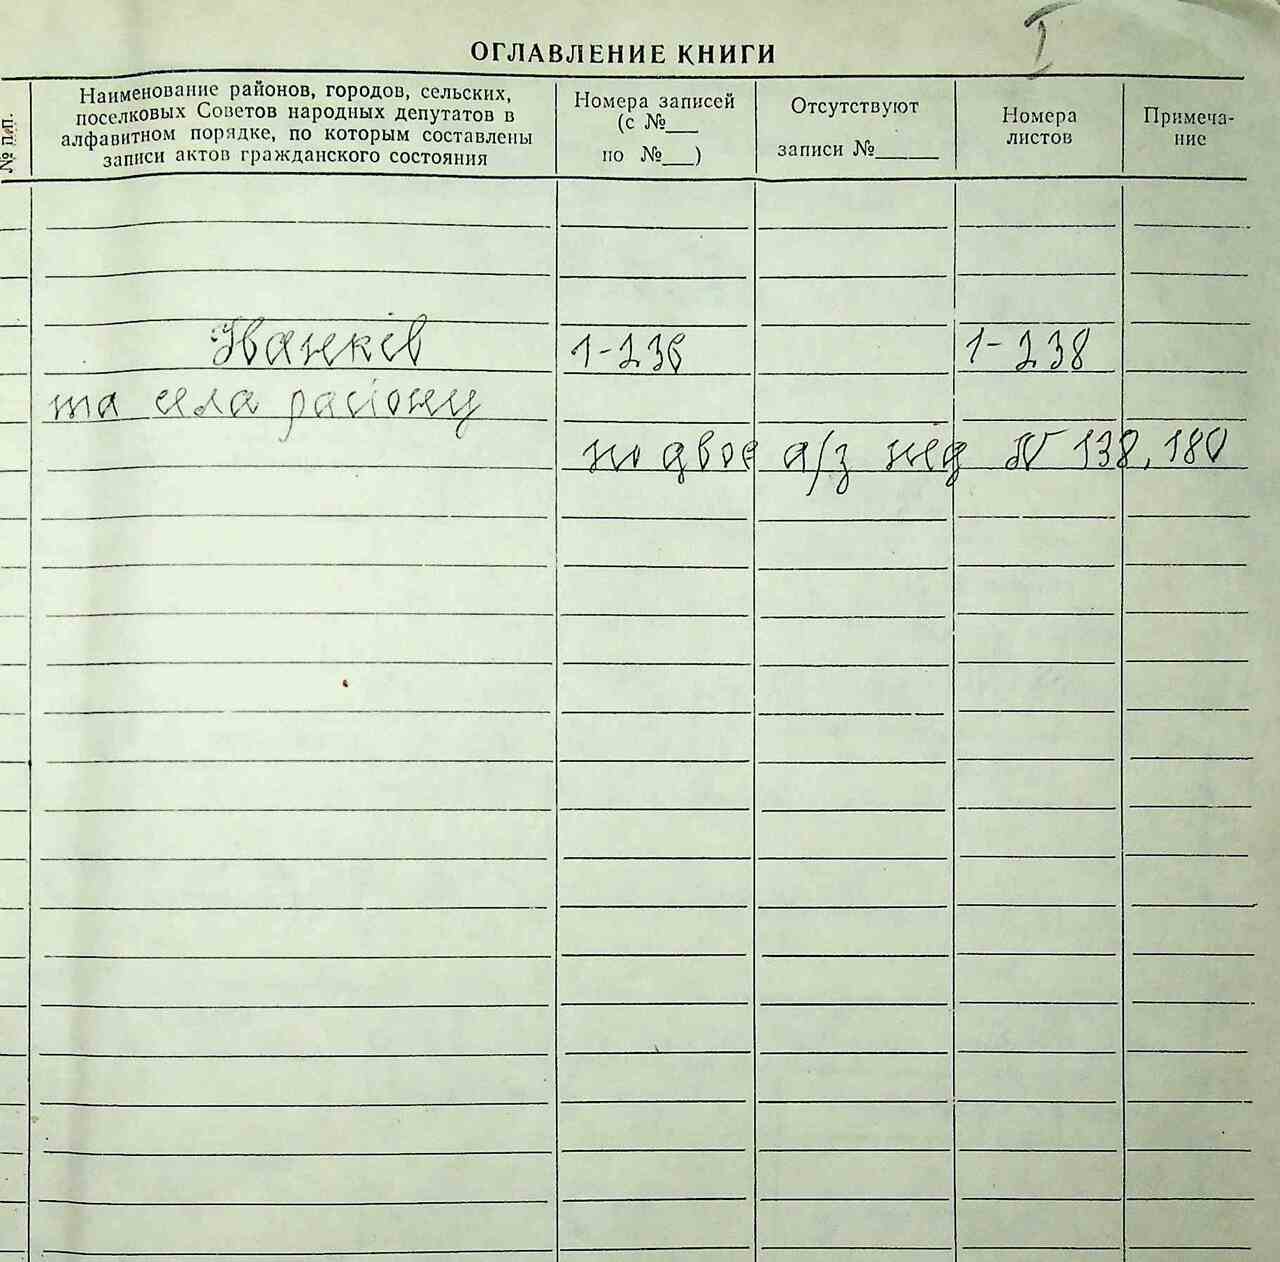 I
ОГЛАВЛЕНИЕ КНИГИ
№ п.п.
Наименование районов, городов, сельских,
поселковых Советов народных депутатов в
алфавитном порядке, по которым составлены
записи актов гражданского состояния
Номера записей
(с №___
по №___)
Отсутствуют
записи №_____
Номера
листов
Примеча-
ние
Іванків 1-236 1-238
та села району
по двое а/з под N 138, 180